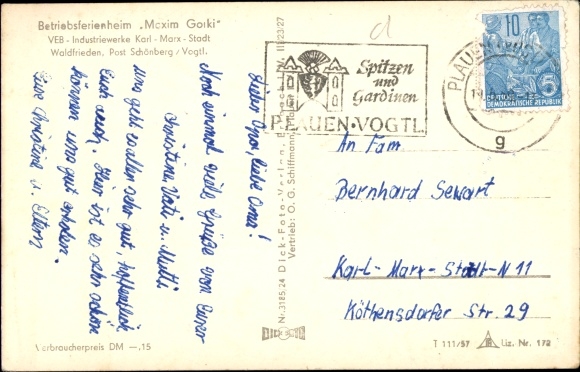 Betriebsferienheim „Maxim Gorki"
VEB - Industriewerke Karl - Marx - Stadt
Waldfrieden, Post Schönberg / Vogtl.
Lieber Opa, liebe Oma!
Noch einmal viele Grüße von Eurer
Christine, Vati u. Mutti.
Uns geht es allen sehr gut, hoffentlich
Euch auch. Hier ist es sehr schön
können uns gut erholen.
Eure Christine u. Eltern
Verbraucherpreis DM —,15
Nr. 3185/24 Dick-Foto-Verlag,
III/23/27
Vertrieb: O. G. Schiffmann,
DICK
Spitzen
und
Gardinen
PLAUEN·VOGTL
PLAUEN (VOGTL
g
10
5
DEUTSCHE
DEMOKRATISCHE REPUBLIK
d
An Fam
Bernhard Sewart
Karl-Marx-Stadt-N 11
Köthensdorfer Str. 29
T 111/57
Liz. Nr. 172